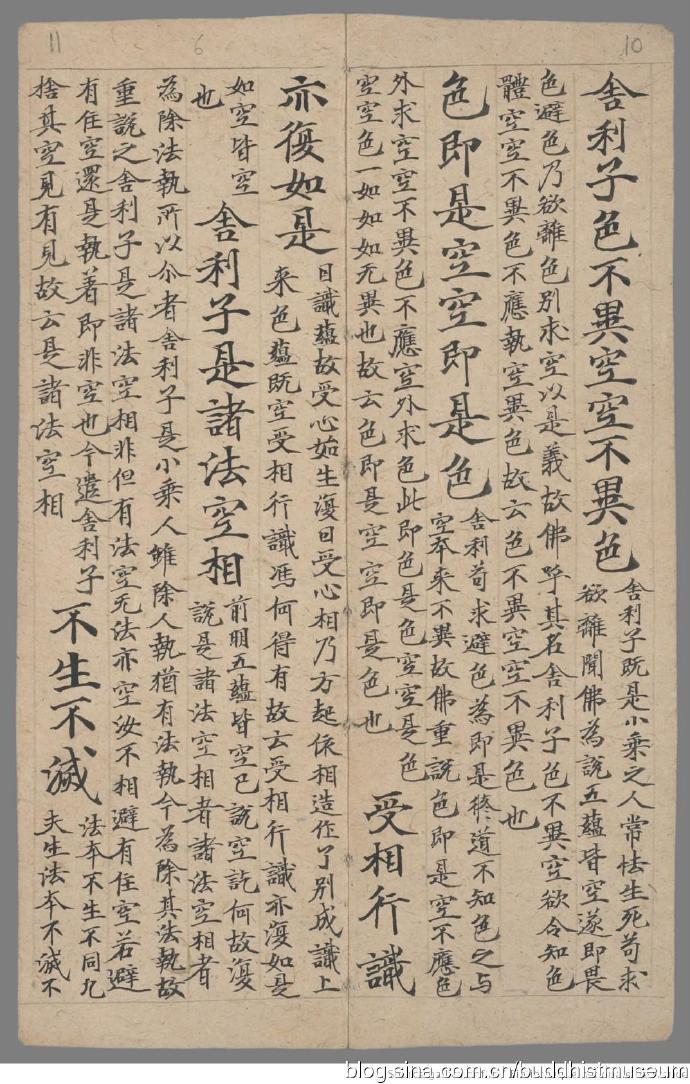 11
6
10
舍利子色不異空空不異色
舍利子既是小乘之人常怯生死苟求
欲離聞佛為說五蘊皆空遂即畏
色避色乃欲離色別求空以是義故佛呼其名舍利子色不異空欲令知色
體空空不異色不應執空異色故云色不異空空不異色也
色即是空空即是色
舍利苟求避色為即是修道不知色之与
空本来不異故佛重說色即是空不應色
外求空空不異色不應空外求色此即色是色空空是色
空空色一如如如无異也故云色即是空空即是色也
受相行識
亦復如是
曰識蘊故受心始生復曰受心相乃方起依相造作了別成識上
来色蘊既空受相行識馮何得有故云受相行識亦復如是
如空皆空
也
舍利子是諸法空相
前明五蘊皆空已說空訖何故復
說是諸法空相者諸法空相者
為除法執所以尒者舍利子是小乘人雖除人執猶有法執今為除其法執故
重說之舍利子是諸法空相非但有法空无法亦空汝不相避有住空若避
有住空還是執著即非空也今遣舍利子
捨其空見有見故云是諸法空相
不生不滅
法本不生不同凢
夫生法本不滅不
blog.sina.com.cn/buddhistmuseum